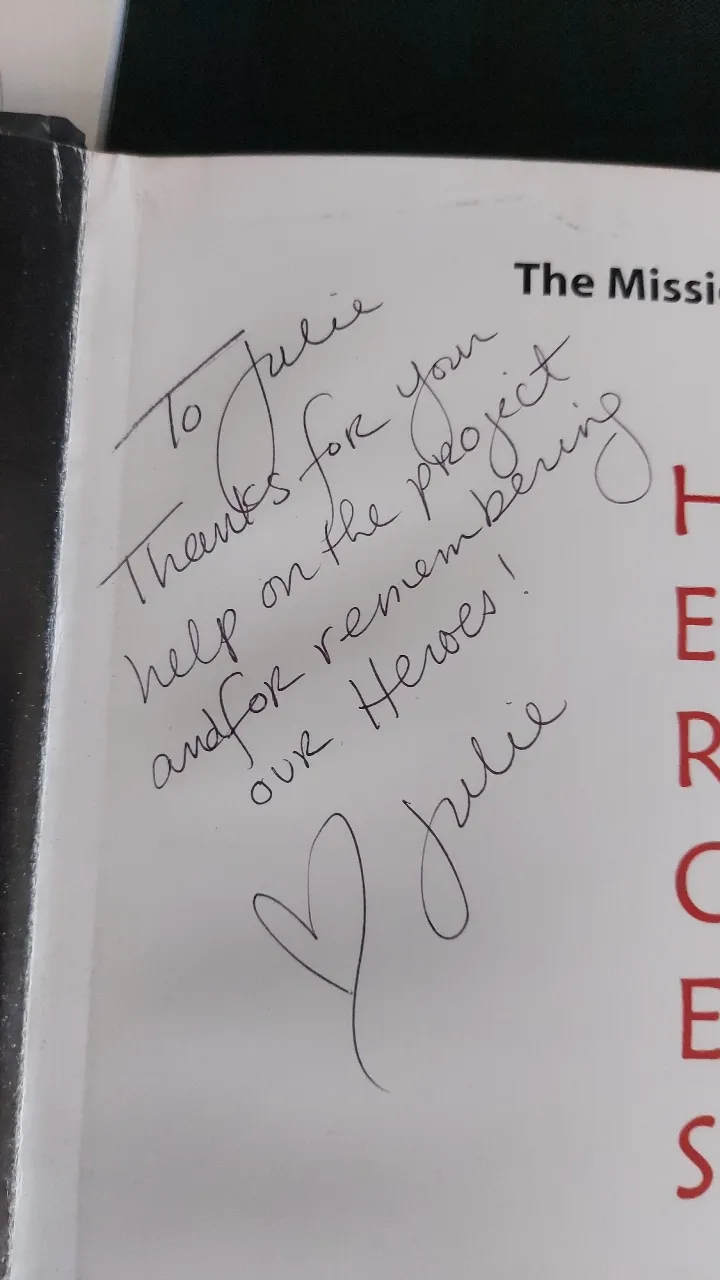 The Missi
To Julie
Thanks for your
help on the project
and for remembering
our Heroes!
♡ Julie
H
E
R
O
E
S